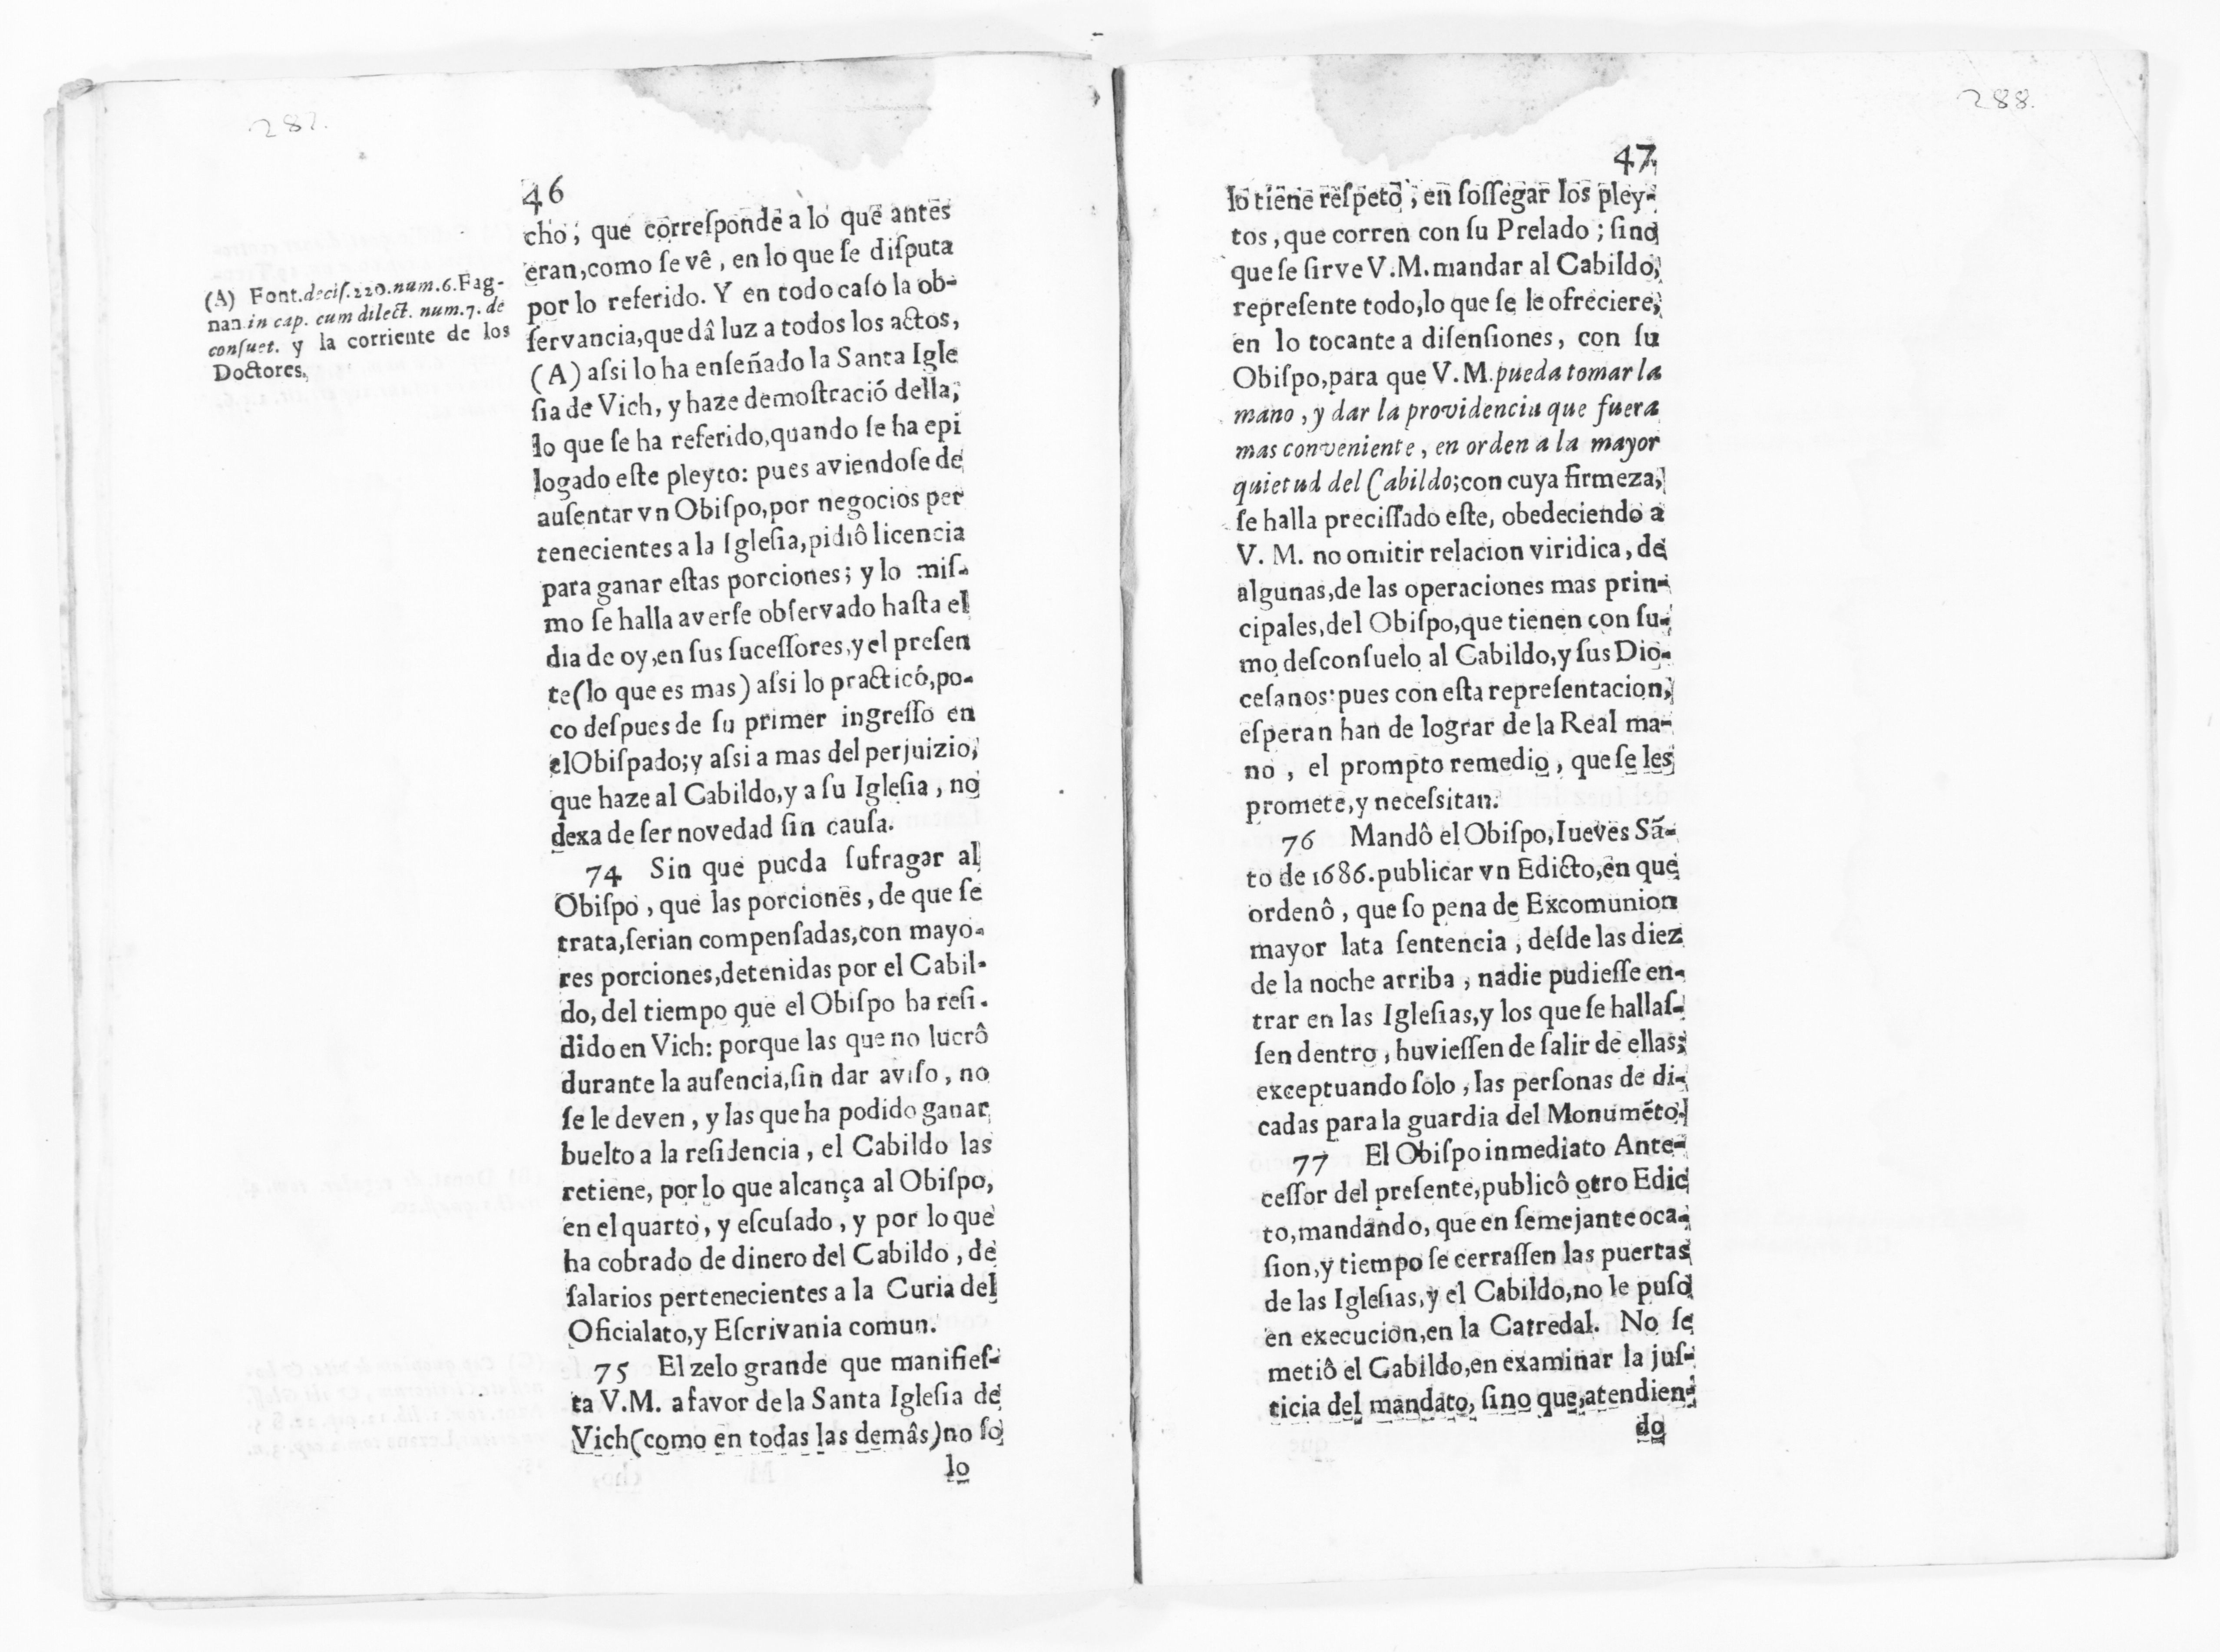 287.
46
cho, que correſponde a lo que antes
eran, como ſe vê, en lo que ſe diſputa
por lo referido. Y en todo caſo la ob-
ſervancia, que dâ luz a todos los actos,
(A) aſsi lo ha enſeñado la Santa Igle
ſia de Vich, y haze demoſtració della,
lo que ſe ha referido, quando ſe ha epi
logado eſte pleyto: pues aviendoſe de
auſentar vn Obiſpo, por negocios per
tenecientes a la Igleſia, pidiô licencia
para ganar eſtas porciones; y lo miſ-
mo ſe halla averſe obſervado haſta el
dia de oy, en ſus ſuceſſores, y el preſen
te (lo que es mas) aſsi lo practicó, po-
co deſpues de ſu primer ingreſſo en
el Obiſpado; y aſsi a mas del perjuizio,
que haze al Cabildo, y a ſu Igleſia, no
dexa de ſer novedad ſin cauſa.
74 Sin que pueda ſufragar al
Obiſpo, que las porciones, de que ſe
trata, ſerian compenſadas, con mayo-
res porciones, detenidas por el Cabil-
do, del tiempo que el Obiſpo ha reſi-
dido en Vich: porque las que no lucrô
durante la auſencia, ſin dar aviſo, no
ſe le deven, y las que ha podido ganar
buelto a la reſidencia, el Cabildo las
retiene, por lo que alcança al Obiſpo,
en el quarto, y eſcuſado, y por lo que
ha cobrado de dinero del Cabildo, de
ſalarios pertenecientes a la Curia del
Oficialato, y Eſcrivania comun.
75 El zelo grande que manifieſ-
ta V.M. a favor de la Santa Igleſia de
Vich (como en todas las demâs) no ſo
lo
(A) Font. deciſ. 220. num. 6. Fag-
nan in cap. cum dilect. num. 7. de
conſuet. y la corriente de los
Doctores.
288.
47
lo tiene reſpeto, en ſoſſegar los pley-
tos, que corren con ſu Prelado; ſino
que ſe ſirve V.M. mandar al Cabildo,
repreſente todo, lo que ſe le ofreciere,
en lo tocante a diſenſiones, con ſu
Obiſpo, para que V.M. pueda tomar la
mano, y dar la providencia que fuera
mas conveniente, en orden a la mayor
quietud del Cabildo; con cuya firmeza,
ſe halla preciſſado eſte, obedeciendo a
V. M. no omitir relacion viridica, de
algunas, de las operaciones mas prin-
cipales, del Obiſpo, que tienen con ſu-
mo deſconſuelo al Cabildo, y ſus Dio-
ceſanos: pues con eſta repreſentacion,
eſperan han de lograr de la Real ma-
no, el prompto remedio, que ſe les
promete, y neceſsitan.
76 Mandô el Obiſpo, Iueves Sã-
to de 1686. publicar vn Edicto, en que
ordenô, que ſo pena de Excomunion
mayor lata ſentencia, deſde las diez
de la noche arriba, nadie pudieſſe en-
trar en las Igleſias, y los que ſe hallaſ-
ſen dentro, huvieſſen de ſalir de ellas;
exceptuando ſolo, las perſonas de di-
cadas para la guardia del Monumẽto.
77 El Obiſpo inmediato Ante-
ceſſor del preſente, publicô otro Edic
to, mandando, que en ſemejante oca-
ſion, y tiempo ſe cerraſſen las puertas
de las Igleſias, y el Cabildo, no le puſo
en execucion, en la Catredal. No ſe
metiô el Cabildo, en examinar la juſ-
ticia del mandato, ſino que, atendien-
do